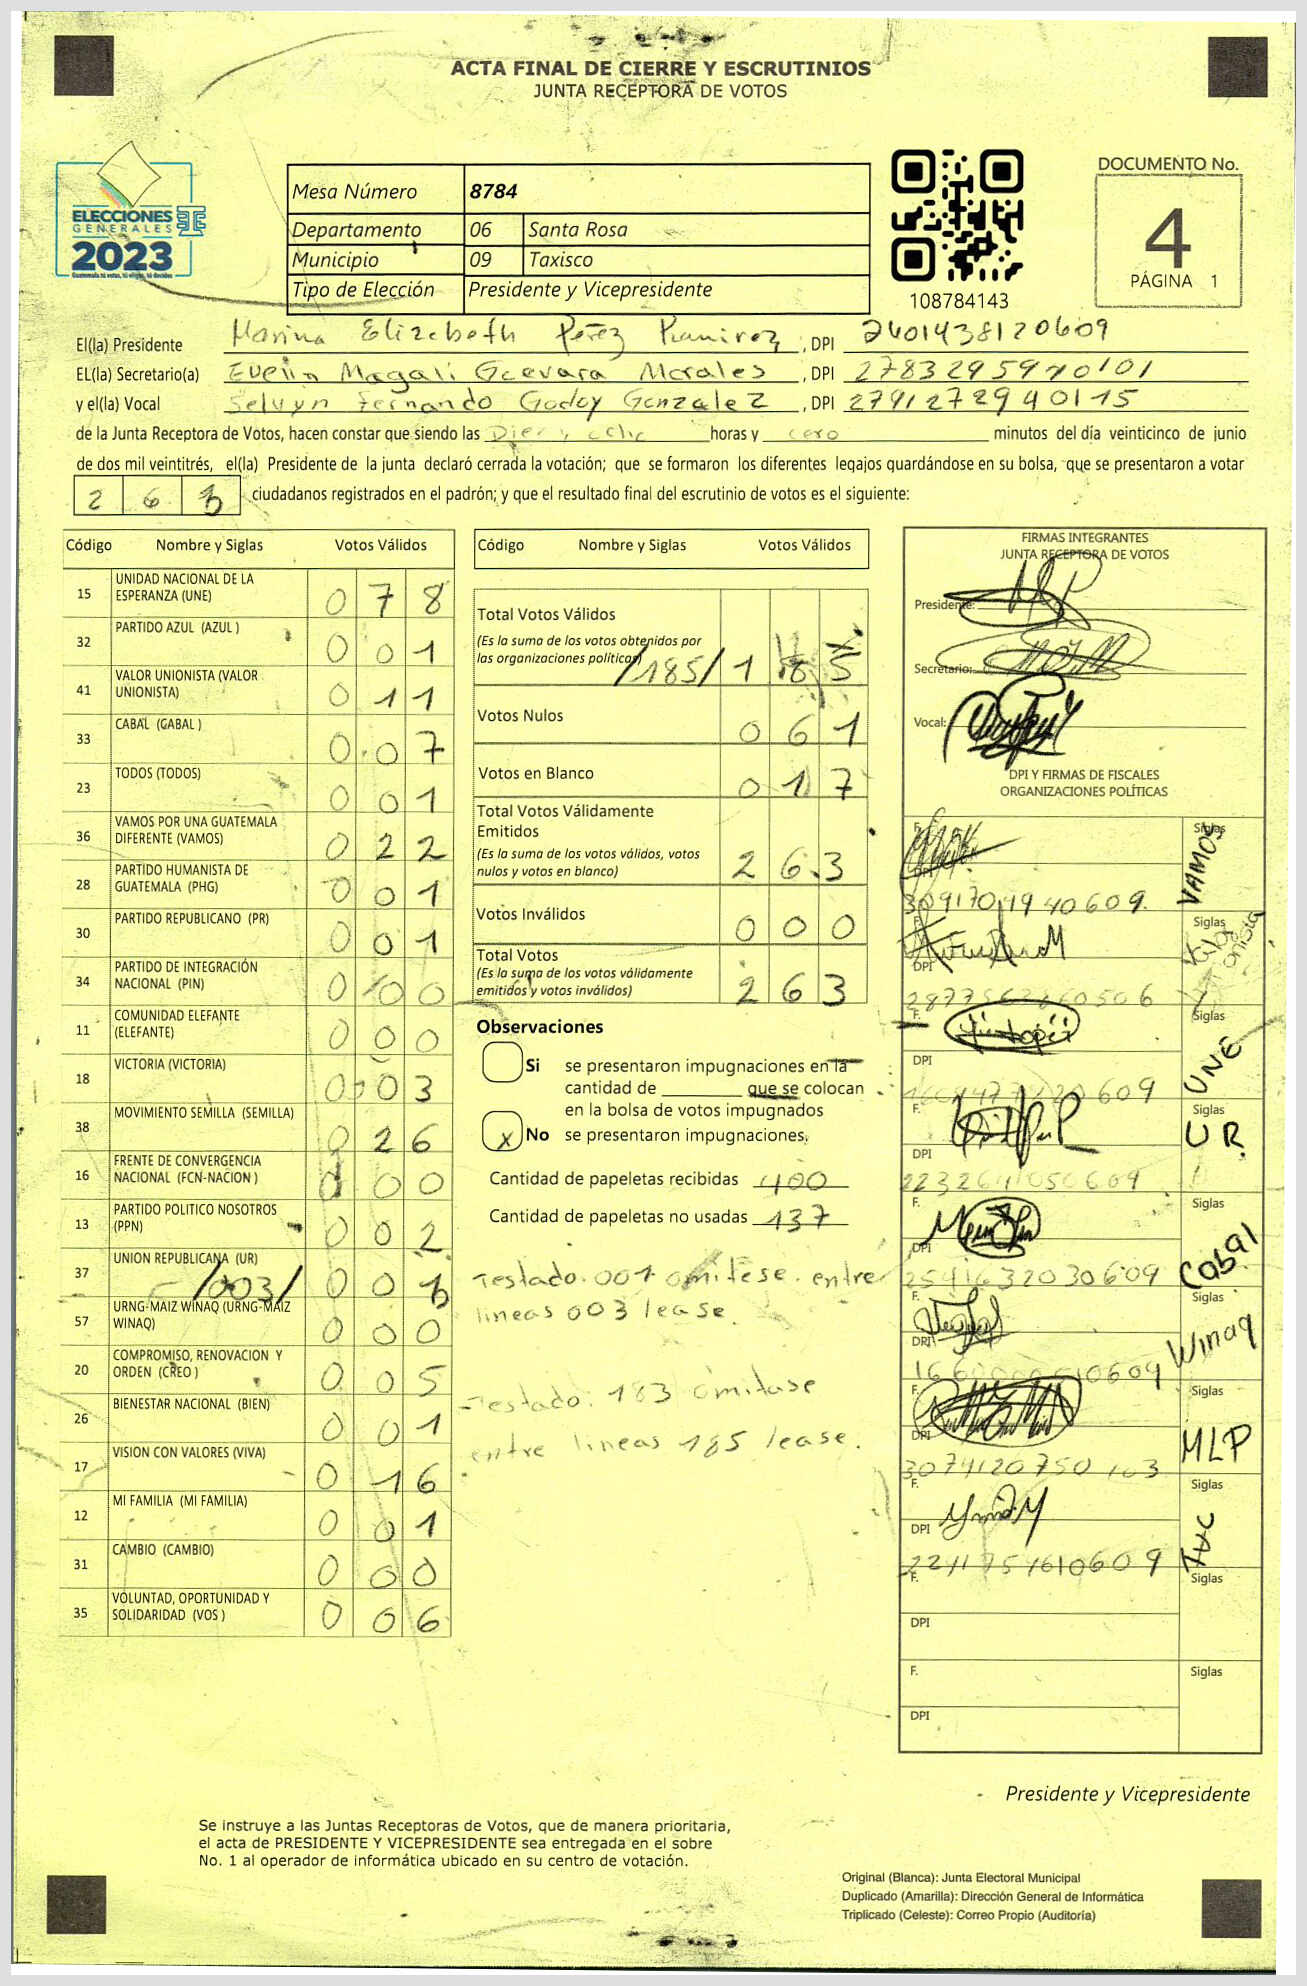 ACTA FINAL DE CIERRE Y ESCRUTINIOS
JUNTA RECEPTORA DE VOTOS
ELECCIONES
GENERALES
2023
Guatemala tú votas, tú eliges, tú decides
Mesa Número 8784
Departamento 06 Santa Rosa
Municipio 09 Taxisco
Tipo de Elección Presidente y Vicepresidente
108784143
DOCUMENTO No.
4
PÁGINA 1
El(la) Presidente Marina Elizabeth Pérez Ramirez, DPI 2401438120609
EL(la) Secretario(a) Evelin Magali Guevara Morales, DPI 2783295970101
y el(la) Vocal Selvyn Fernando Godoy Gonzalez, DPI 2791272940115
de la Junta Receptora de Votos, hacen constar que siendo las Diez y ocho horas y cero minutos del día veinticinco de junio
de dos mil veintitrés, el(la) Presidente de la junta declaró cerrada la votación; que se formaron los diferentes legajos guardándose en su bolsa, que se presentaron a votar
263 ciudadanos registrados en el padrón; y que el resultado final del escrutinio de votos es el siguiente:
Código Nombre y Siglas Votos Válidos
15 UNIDAD NACIONAL DE LA ESPERANZA (UNE) 078
32 PARTIDO AZUL (AZUL ) 001
41 VALOR UNIONISTA (VALOR UNIONISTA) 011
33 CABAL (CABAL ) 007
23 TODOS (TODOS) 001
36 VAMOS POR UNA GUATEMALA DIFERENTE (VAMOS) 022
28 PARTIDO HUMANISTA DE GUATEMALA (PHG) 001
30 PARTIDO REPUBLICANO (PR) 001
34 PARTIDO DE INTEGRACIÓN NACIONAL (PIN) 000
11 COMUNIDAD ELEFANTE (ELEFANTE) 000
18 VICTORIA (VICTORIA) 003
38 MOVIMIENTO SEMILLA (SEMILLA) 026
16 FRENTE DE CONVERGENCIA NACIONAL (FCN-NACION ) 000
13 PARTIDO POLITICO NOSOTROS (PPN) 002
37 UNION REPUBLICANA (UR) /003/ 00
57 URNG-MAIZ WINAQ (URNG-MAIZ WINAQ) 000
20 COMPROMISO, RENOVACION Y ORDEN (CREO ) 005
26 BIENESTAR NACIONAL (BIEN) 001
17 VISION CON VALORES (VIVA) 016
12 MI FAMILIA (MI FAMILIA) 001
31 CAMBIO (CAMBIO) 000
35 VOLUNTAD, OPORTUNIDAD Y SOLIDARIDAD (VOS ) 006
Código Nombre y Siglas Votos Válidos
Total Votos Válidos
(Es la suma de los votos obtenidos por
las organizaciones políticas) /185/ 185
Votos Nulos 061
Votos en Blanco 017
Total Votos Válidamente
Emitidos
(Es la suma de los votos válidos, votos
nulos y votos en blanco) 263
Votos Inválidos 000
Total Votos
(Es la suma de los votos válidamente
emitidos y votos inválidos) 263
Observaciones
Si se presentaron impugnaciones en la
cantidad de que se colocan
en la bolsa de votos impugnados
x No se presentaron impugnaciones.
Cantidad de papeletas recibidas 400
Cantidad de papeletas no usadas 137
Testado. 001 omitese. entre
lineas 003 lease.
Testado: 183 omitase
entre lineas 185 lease.
FIRMAS INTEGRANTES
JUNTA RECEPTORA DE VOTOS
Presidente:
Secretario:
Vocal:
DPI Y FIRMAS DE FISCALES
ORGANIZACIONES POLÍTICAS
F. Siglas VAMOS
DPI
F. Siglas
DPI
F. Siglas UNE
DPI
F. Siglas UR
DPI
F. Siglas Cabal
DPI 2541632030609
F. Siglas Winaq
DPI
F. Siglas MLP
DPI 3074120750103
F. Siglas
DPI 2241751610609
F. Siglas
DPI
F. Siglas
DPI
Presidente y Vicepresidente
Se instruye a las Juntas Receptoras de Votos, que de manera prioritaria,
el acta de PRESIDENTE Y VICEPRESIDENTE sea entregada en el sobre
No. 1 al operador de informática ubicado en su centro de votación.
Original (Blanca): Junta Electoral Municipal
Duplicado (Amarilla): Dirección General de Informática
Triplicado (Celeste): Correo Propio (Auditoría)